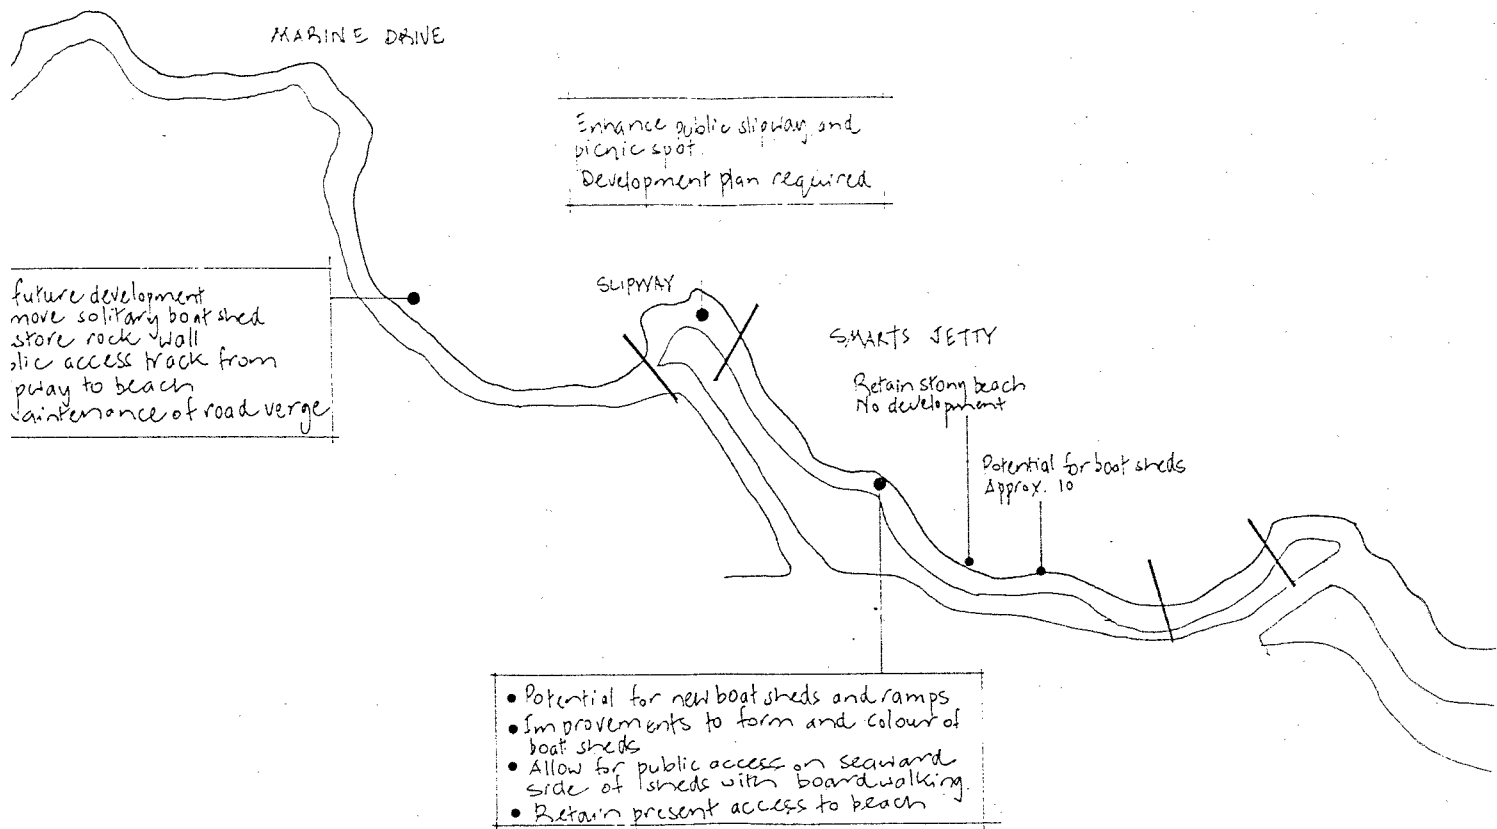 MARINE DRIVE
Enhance public slipway and
picnic spot.
Development plan required
future development
move solitary boat shed
store rock wall
blic access track from
pway to beach
aintenance of road verge
SLIPWAY
SMARTS JETTY
Retain stony beach
No development
Potential for boat sheds
Approx. 10
• Potential for new boat sheds and ramps
• Improvements to form and colour of
boat sheds
• Allow for public access on seaward
side of sheds with boardwalking.
• Retain present access to beach